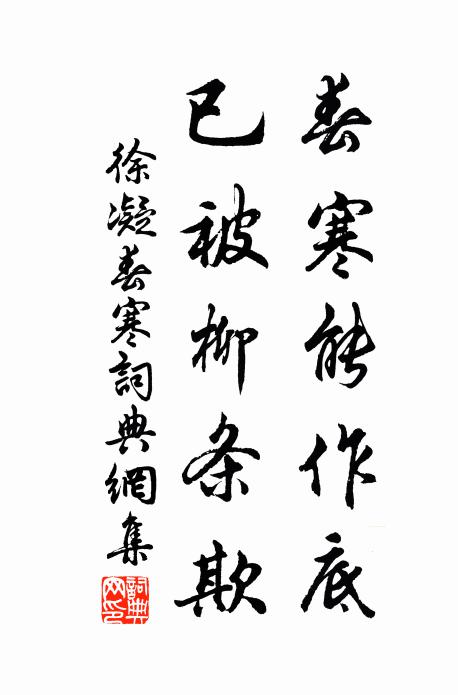 春寒能作底
已被柳条欺
徐凝春寒詞典網集
詞典网印